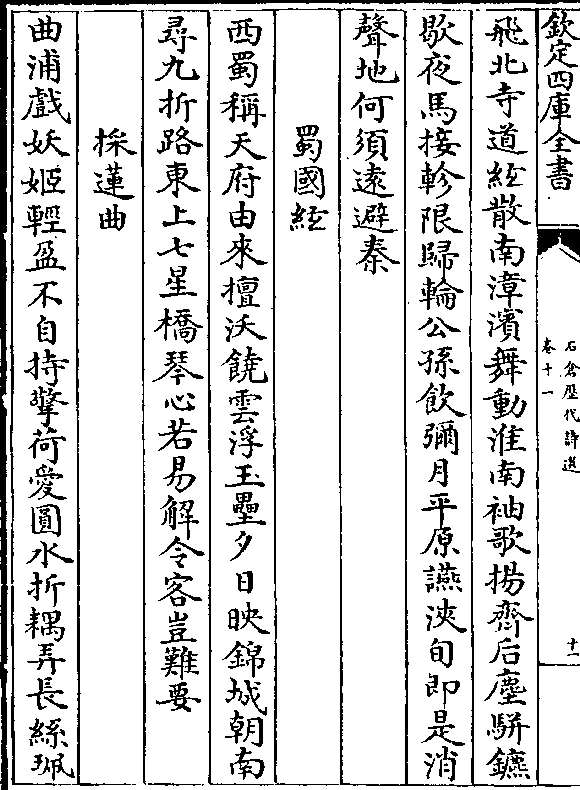 欽定四庫全書
石倉歷代詩選
卷十一
十一
飛北寺道紅散南漳濱舞動淮南袖歌揚齊后塵駢鑣
歇夜馬接軫限歸輪公孫飲彌月平原讌浹旬即是消
聲地何須遠避秦
蜀國絃
西蜀稱天府由來擅沃饒雲浮玉壘夕日映錦城朝南
尋九折路東上七星橋琴心若易解令客豈難要
採蓮曲
曲浦戲妖姬輕盈不自持擎荷愛圓水折耦弄長絲珮